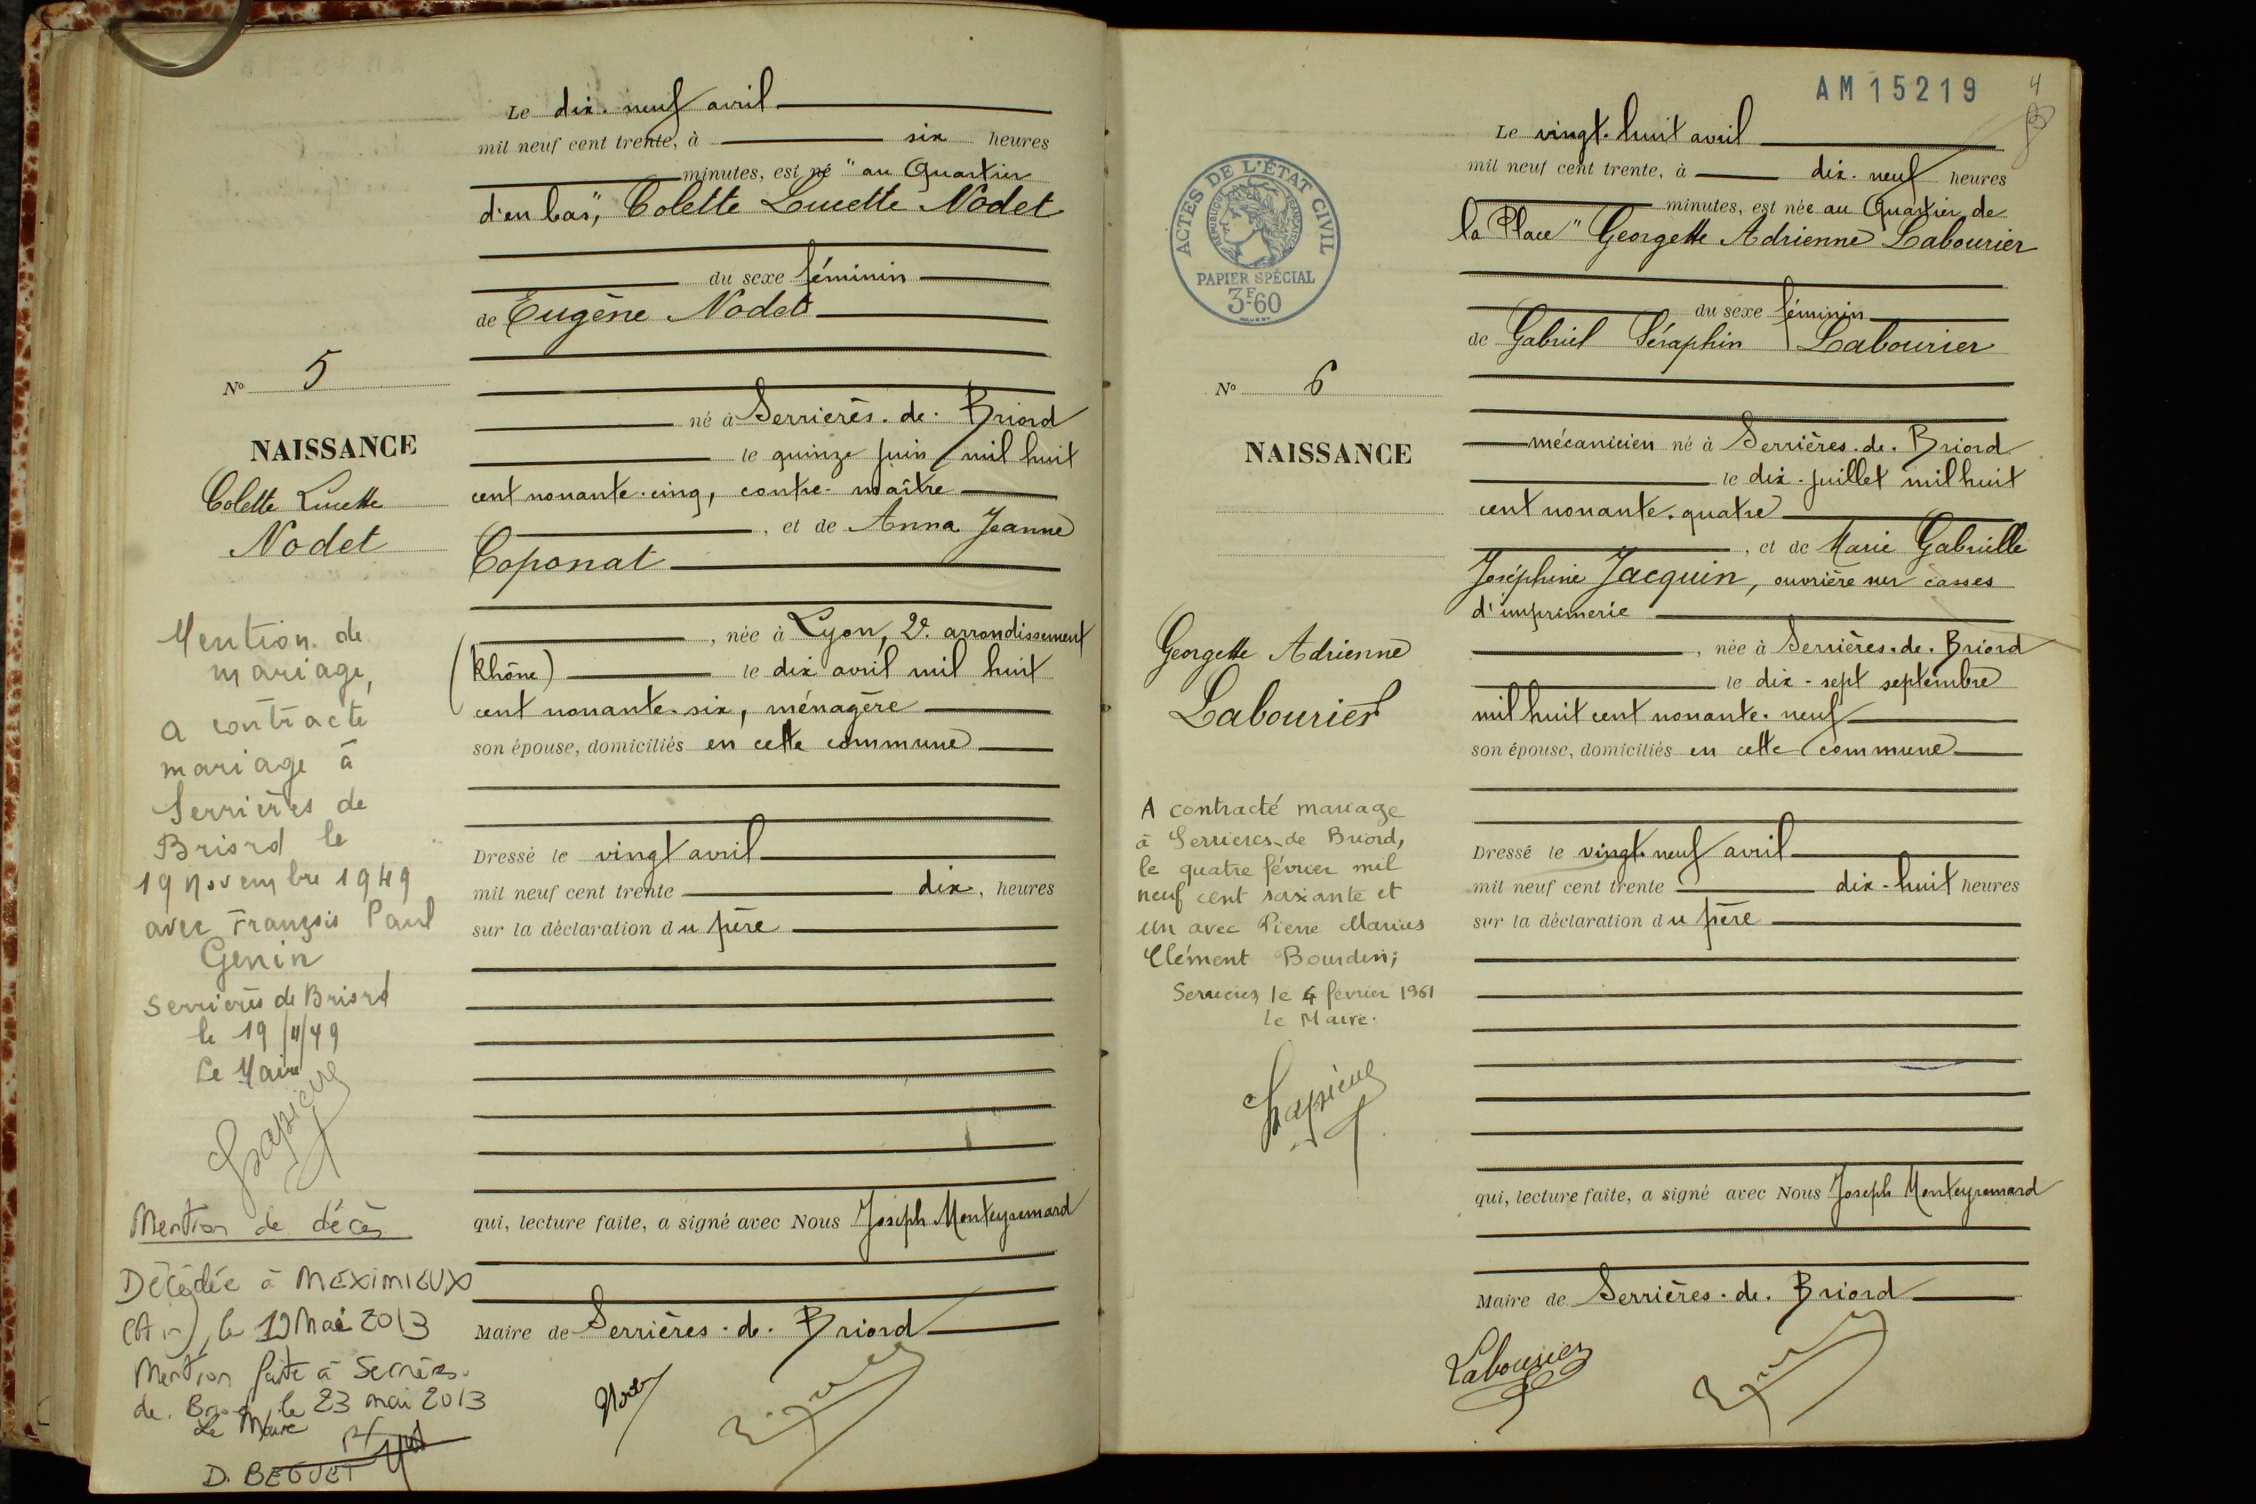 Le dix-neuf avril
mil neuf cent trente, à six heures
minutes, est né "au Quartier
d'en bas", Colette Lucette Nodet
du sexe féminin
de Eugène Nodet
né à Serrières-de-Briord
le quinze juin mil huit
cent nonante-cinq, contre-maître
, et de Anna Jeanne
Coponat
, née à Lyon, 2e arrondissement
(Rhône) le dix avril mil huit
cent nonante-six, ménagère
son épouse, domiciliés en cette commune
Dressé le vingt avril
mil neuf cent trente dix, heures
sur la déclaration du père
qui, lecture faite, a signé avec Nous Joseph Monteyremard
Maire de Serrières-de-Briord
No 5
NAISSANCE
Colette Lucette
Nodet
Mention de
mariage,
a contracté
mariage à
Serrières de
Briord le
19 novembre 1949
avec François Paul
Genin
Serrières de Briord
le 19/11/49
Le Maire
Mention de décès
Décédée à MEXIMIEUX
(Ain), le 12 Mai 2013
Mention faite à Serrières-
de-Briord, le 23 mai 2013
Le Maire
D. BEGUET
AM 15219
4
Le vingt-huit avril
mil neuf cent trente, à dix-neuf heures
minutes, est née au Quartier de
la Place" Georgette Adrienne Labourier
du sexe féminin
de Gabriel Séraphin Labourier
mécanicien né à Serrières-de-Briord
le dix-juillet mil huit
cent nonante-quatre
, et de Marie Gabrielle
Joséphine Jacquin, ouvrière sur casses
d'imprimerie
, née à Serrières-de-Briord
le dix-sept septembre
mil huit cent nonante-neuf
son épouse, domiciliés en cette commune
Dressé le vingt-neuf avril
mil neuf cent trente dix-huit heures
sur la déclaration du père
qui, lecture faite, a signé avec Nous Joseph Monteyremard
Maire de Serrières-de-Briord
Labourier
ACTES DE L'ÉTAT CIVIL
RÉPUBLIQUE FRANÇAISE
PAPIER SPÉCIAL
3F60
No 6
NAISSANCE
Georgette Adrienne
Labourier
A contracté mariage
à Serrieres-de Briord,
le quatre février mil
neuf cent soixante et
un avec Pierre Marius
Clément Bourdin;
Serrieres le 4 février 1961
le Maire.